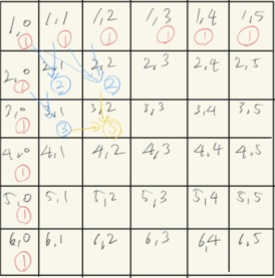 1,0 1,1 1,2 1,3 1,4 1,5
1 1 1 1 1 1
2,0 2,1 2,2 2,3 2,4 2,5
1 2 2
3,0 3,1 3,2 3,3 3,4 3,5
1 3 5
4,0 4,1 4,2 4,3 4,4 4,5
1
5,0 5,1 5,2 5,3 5,4 5,5
1
6,0 6,1 6,2 6,3 6,4 6,5
1